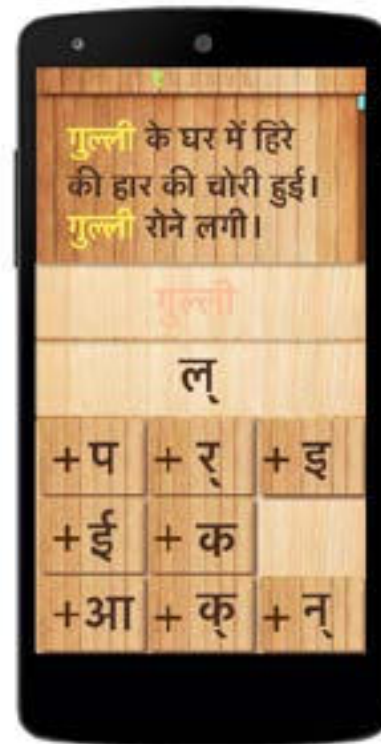 गुल्ली के घर में हिरे
की हार की चोरी हुई।
गुल्ली रोने लगी।
गुल्ली
ल्
+प +र् +इ
+ई +क
+आ +क् +न्